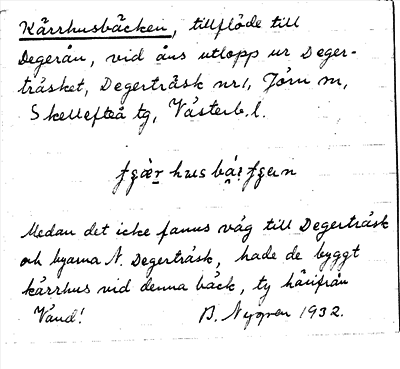 Kärrhusbäcken, tillflöde till
Degerån, vid åns utlopp ur Deger-
träsket, Degerträsk nr 1, Jörn sn,
Skellefteå tg, Västerb. l.
hus
Medan det icke fanns väg till Degerträsk
och byarna N. Degerträsk, hade de byggt
kärrhus vid denna bäck, ty härifrån
B. Nygren 1932.